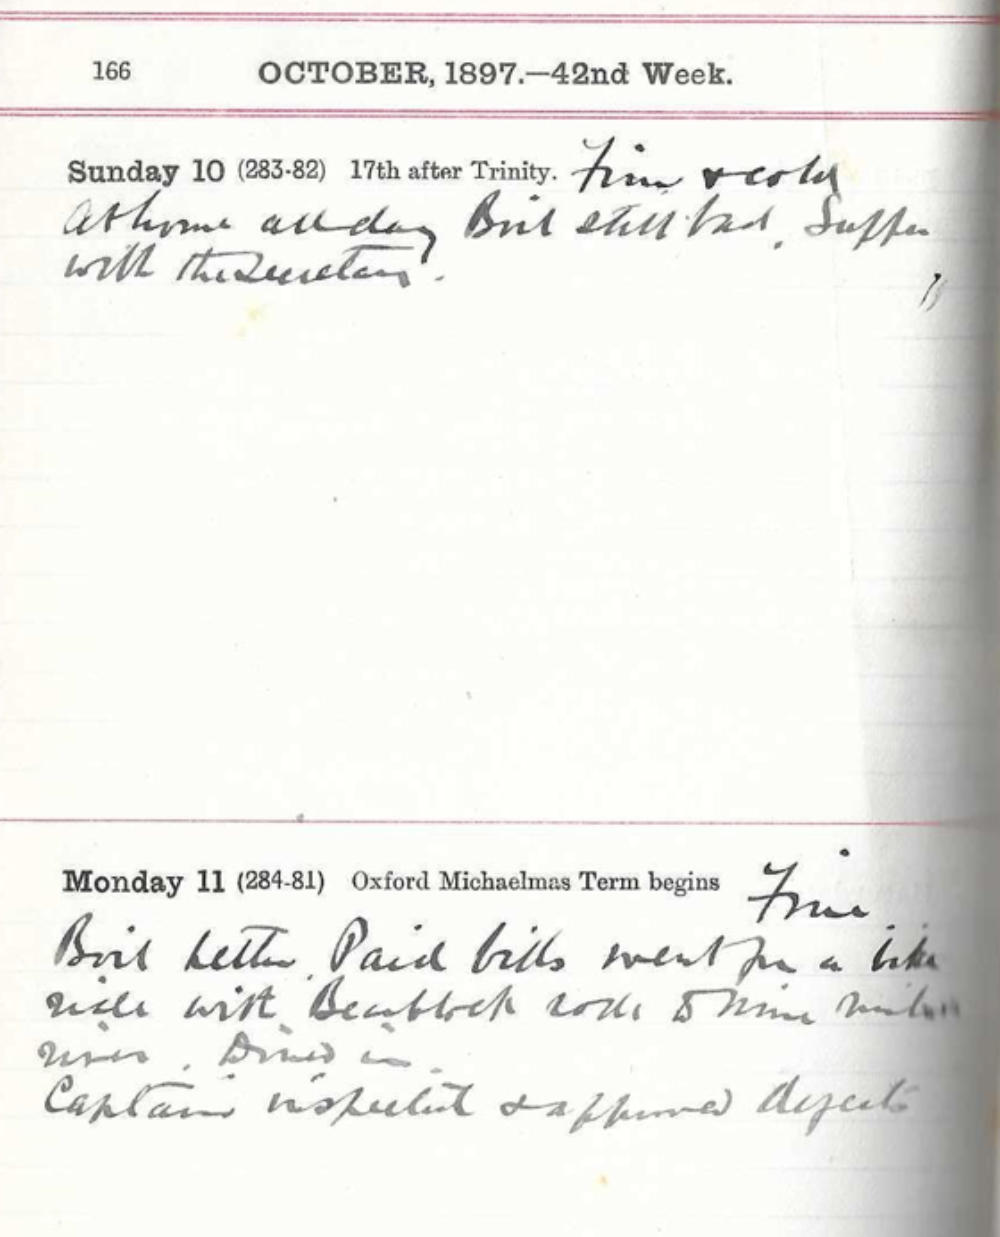 166 OCTOBER, 1897.—42nd Week.
Sunday 10 (283-82) 17th after Trinity. Fine & cold
At home all day Boil still bad. Supper
with the Secretary.
Monday 11 (284-81) Oxford Michaelmas Term begins Fine
Boil better. Paid bills went for a bike
ride with rode to Nine mile
river. Dined in.
Captain inspected & approved defects